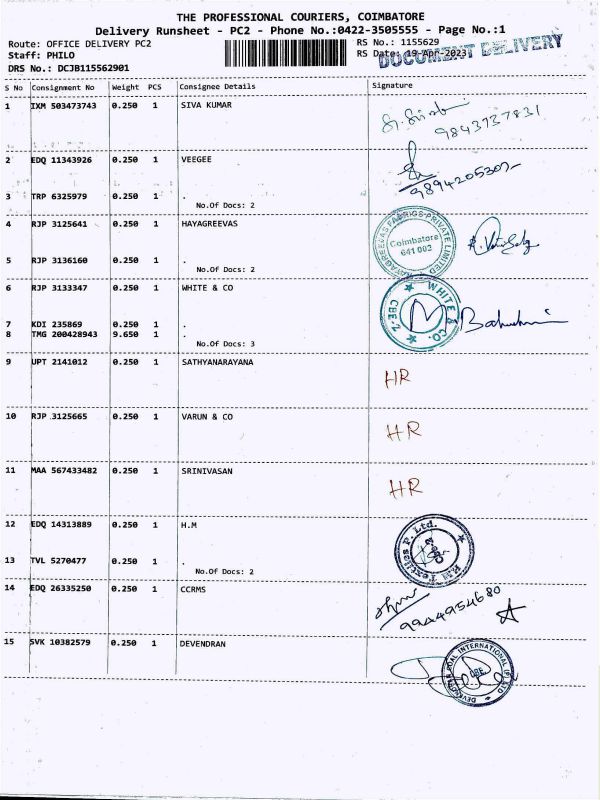 THE PROFESSIONAL COURIERS, COIMBATORE
Delivery Runsheet - PC2 - Phone No.:0422-3505555 - Page No.:1
Route: OFFICE DELIVERY PC2 RS No.: 1155629
Staff: PHILO RS Date: 19-Apr-2023
DOCUMENT DELIVERY
DRS No.: DCJB115562901
S No Consignment No Weight PCS Consignee Details Signature
1 IXM 503473743 0.250 1 SIVA KUMAR
9843737831
2 EDQ 11343926 0.250 1 VEEGEE
3 TRP 6325979 0.250 1 .
No.Of Docs: 2
4 RJP 3125641 0.250 1 HAYAGREEVAS
HAYAGREEVAS FABRICS PRIVATE LIMITED
Coimbatore
641 002
5 RJP 3136160 0.250 1 .
No.Of Docs: 2
6 RJP 3133347 0.250 1 WHITE & CO
WHITE & CO. CBE-2
7 KDI 235869 0.250 1 .
8 TMG 200428943 9.650 1 .
No.Of Docs: 3
9 UPT 2141012 0.250 1 SATHYANARAYANA
HR
10 RJP 3125665 0.250 1 VARUN & CO
HR
11 MAA 567433482 0.250 1 SRINIVASAN
HR
12 EDQ 14313889 0.250 1 H.M
H.M Textiles P. Ltd.
13 TVL 5270477 0.250 1 .
No.Of Docs: 2
14 EDQ 26335250 0.250 1 CCRMS
9944954680
15 SVK 10382579 0.250 1 DEVENDRAN
INTERNATIONAL (P) LTD
CBE